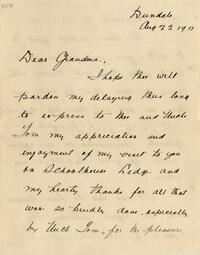 Dundale
Aug 22 1911
Dear Grandma,
I hope thee will
pardon my delaying thus long
to express to thee and Uncle
Tom my appreciation and
enjoyment of my visit to you
on Schoolhouse Ledge and
my hearty thanks for all that
was so kindly done, especially
by Uncle Tom, for the pleasure